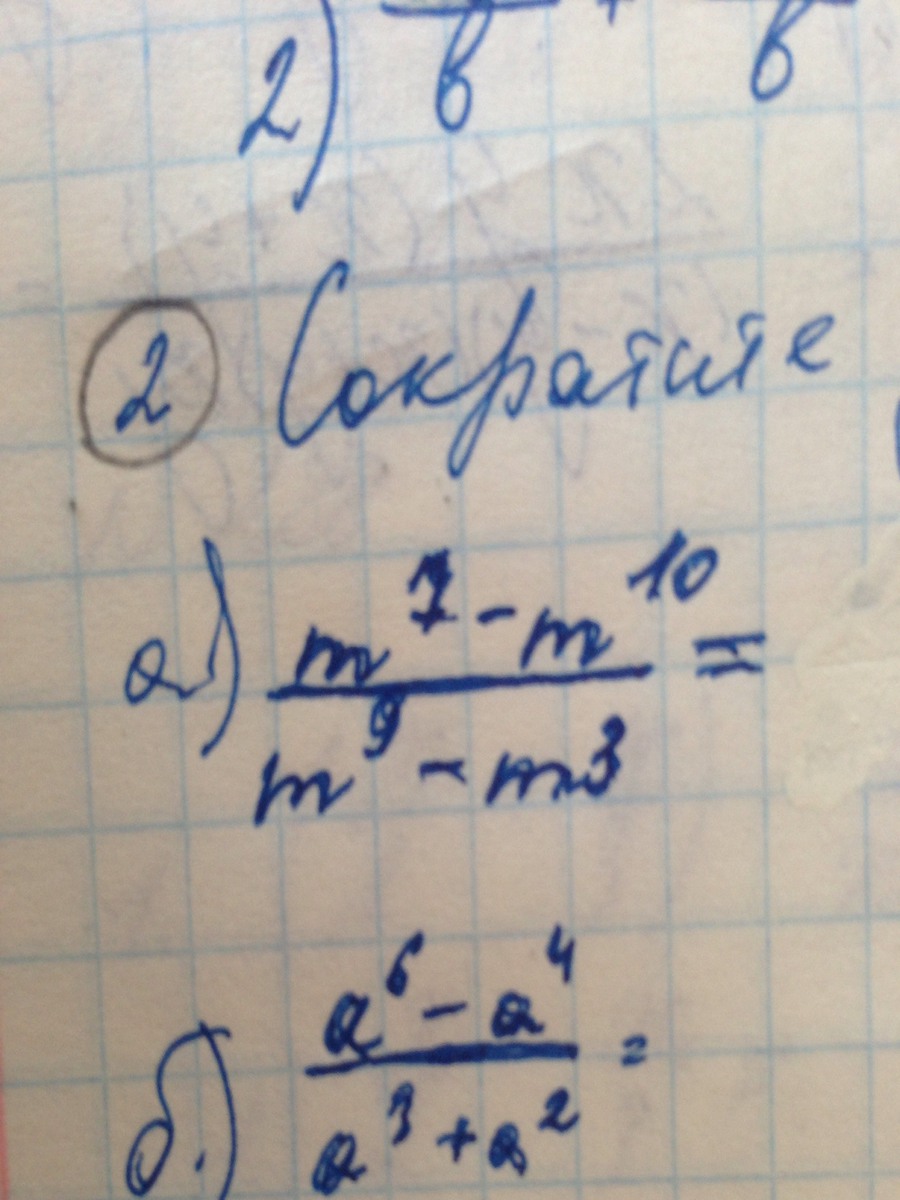 2) в + в
2 Сократите
а) (m^7 - m^10) / (m^9 - m^3) =
б.) (a^6 - a^4) / (a^3 + a^2) =